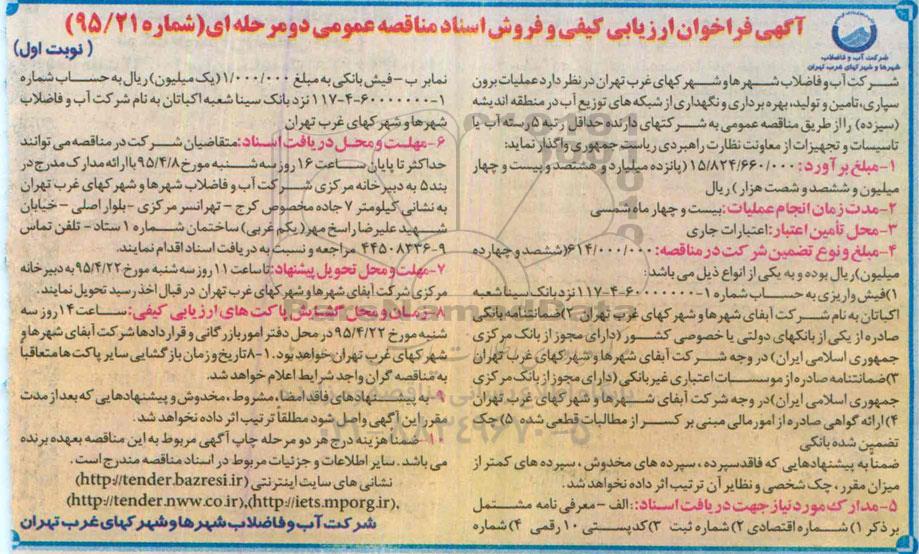 آگهی فراخوان ارزیابی کیفی و فروش اسناد مناقصه عمومی دو مرحله ای (شماره ۹۵/۲۱)
(نوبت اول)
شرکت آب و فاضلاب
شهرها و شهرکهای غرب تهران
شرکت آب و فاضلاب شهرها و شهرکهای غرب تهران در نظر دارد عملیات برون
سپاری، تامین و تولید، بهره برداری و نگهداری از شبکه های توزیع آب در منطقه اندیشه
(سیزده) را از طریق مناقصه عمومی به شرکتهای دارنده حداقل رتبه ۵ رسته آب یا
تاسیسات و تجهیزات از معاونت نظارت راهبردی ریاست جمهوری واگذار نماید:
۱-مبلغ برآورد: ۱۵/۸۲۴/۶۶۰/۰۰۰ (پانزده میلیارد و هشتصد و بیست و چهار
میلیون و ششصد و شصت هزار) ریال
۲-مدت زمان انجام عملیات: بیست و چهار ماه شمسی
۳-محل تأمین اعتبار: اعتبارات جاری
۴-مبلغ و نوع تضمین شرکت در مناقصه: ۶۱۴/۰۰۰/۰۰۰ (ششصد و چهارده
میلیون) ریال بوده و به یکی از انواع ذیل می باشد:
۱) فیش واریزی به حساب شماره ۱-۶۰۰۰۰۰۰۰-۴-۱۱۷ نزد بانک سینا شعبه
اکباتان به نام شرکت آبفای شهرها و شهرکهای غرب تهران ۲) ضمانتنامه بانکی
صادره از یکی از بانکهای دولتی یا خصوصی کشور (دارای مجوز از بانک مرکزی
جمهوری اسلامی ایران) در وجه شرکت آبفای شهرها و شهرکهای غرب تهران
۳) ضمانتنامه صادره از موسسات اعتباری غیربانکی (دارای مجوز از بانک مرکزی
جمهوری اسلامی ایران) در وجه شرکت آبفای شهرها و شهرکهای غرب تهران
۴) ارائه گواهی صادره از امور مالی مبنی بر کسر از مطالبات قطعی شده ۵) چک
تضمین شده بانکی
ضمناً به پیشنهادهایی که فاقد سپرده، سپرده های مخدوش، سپرده های کمتر از
میزان مقرر، چک شخصی و نظایر آن ترتیب اثر داده نخواهد شد.
۵-مدارک مورد نیاز جهت دریافت اسناد: الف - معرفی نامه مشتمل
بر ذکر ۱) شماره اقتصادی ۲) شماره ثبت ۳) کدپستی ۱۰ رقمی ۴) شماره
نمابر ب - فیش بانکی به مبلغ ۱/۰۰۰/۰۰۰ (یک میلیون) ریال به حساب شماره
۱-۶۰۰۰۰۰۰۰-۴-۱۱۷ نزد بانک سینا شعبه اکباتان به نام شرکت آب و فاضلاب
شهرها و شهرکهای غرب تهران
۶-مهلت و محل دریافت اسناد: متقاضیان شرکت در مناقصه می توانند
حداکثر تا پایان ساعت ۱۶ روز سه شنبه مورخ ۹۵/۴/۸ با ارائه مدارک مندرج در
بند ۵ به دبیرخانه مرکزی شرکت آب و فاضلاب شهرها و شهرکهای غرب تهران
به نشانی کیلومتر ۷ جاده مخصوص کرج - تهرانسر مرکزی - بلوار اصلی - خیابان
شهید علیرضا راسخ مهر (یکم غربی) ساختمان شماره ۱ ستاد - تلفن تماس
۹-۴۴۵۰۸۳۳۶ مراجعه و نسبت به دریافت اسناد اقدام نمایند.
۷-مهلت و محل تحویل پیشنهاد: تا ساعت ۱۱ روز سه شنبه مورخ ۹۵/۴/۲۲ به دبیرخانه
مرکزی شرکت آبفای شهرها و شهرکهای غرب تهران در قبال اخذ رسید تحویل نمایند.
۸-زمان و محل گشایش پاکت های ارزیابی کیفی: ساعت ۱۴ روز سه
شنبه مورخ ۹۵/۴/۲۲ در محل دفتر امور بازرگانی و قراردادها شرکت آبفای شهرها و
شهرکهای غرب تهران خواهد بود. ۱-۸ تاریخ و زمان بازگشایی سایر پاکت ها متعاقباً
به مناقصه گران واجد شرایط اعلام خواهد شد.
۹- به پیشنهادهای فاقد امضا، مشروط، مخدوش و پیشنهادهایی که بعد از مدت
مقرر این آگهی واصل شود مطلقاً ترتیب اثر داده نخواهد شد.
۱۰- ضمناً هزینه درج هر دو مرحله چاپ آگهی مربوط به این مناقصه بعهده برنده
می باشد. سایر اطلاعات و جزئیات مربوط در اسناد مناقصه مندرج است.
نشانی های سایت اینترنتی (http://tender.bazresi.ir)
(http://tender.nww.co.ir),(http://iets.mporg.ir),
شرکت آب و فاضلاب شهرها و شهرکهای غرب تهران